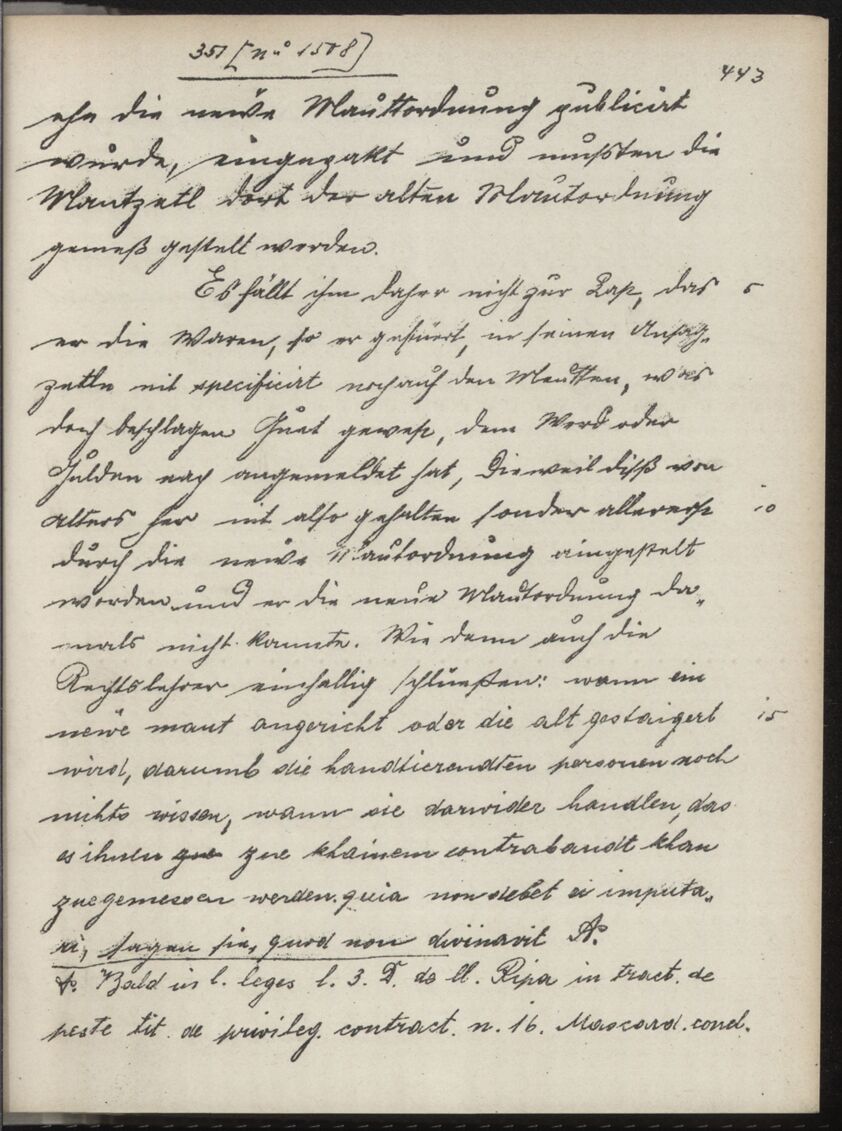 351 [nº 1508]
443
ehe die neüe Mauttordnung publicirt
wurde, eingepakt und mußten die
Mautzetl dort der alten Mautordnung
gemeß gestelt werden.
Es fällt ihm daher nicht zur Last, das 5
er die Waren, so er gefüert, in seinen Ansag„
zetln nit specificirt noch auf den Meutten, was
doch beschlagen Guet gewest, dem Werd oder
Gulden nach angemeldet hat, dieweil diß von
alters her nit also gehalten sonder allererst 10
durch die neüe Mautordnung eingestelt
worden und er die neue Mautordnung da„
mals nicht kannte. Wie denn auch die
Rechtslehrer einhellig schlüeßen: wann ein
neüe maut angericht oder die alt gestaigert 15
wird, darumb die handtierendten personen noch
nichts wissen, wann sie darwider handlen, das
es ihnen zue khainem contrabandt khan
zuegemessen werden. quia non debet ei imputa„
ri, sagen sie, quod non divinavit A.
A. Bald in l. leges l. 3. D. de ll. Ripa in tract. de
peste tit. de privileg. contract. n. 16. Mascard. concl.